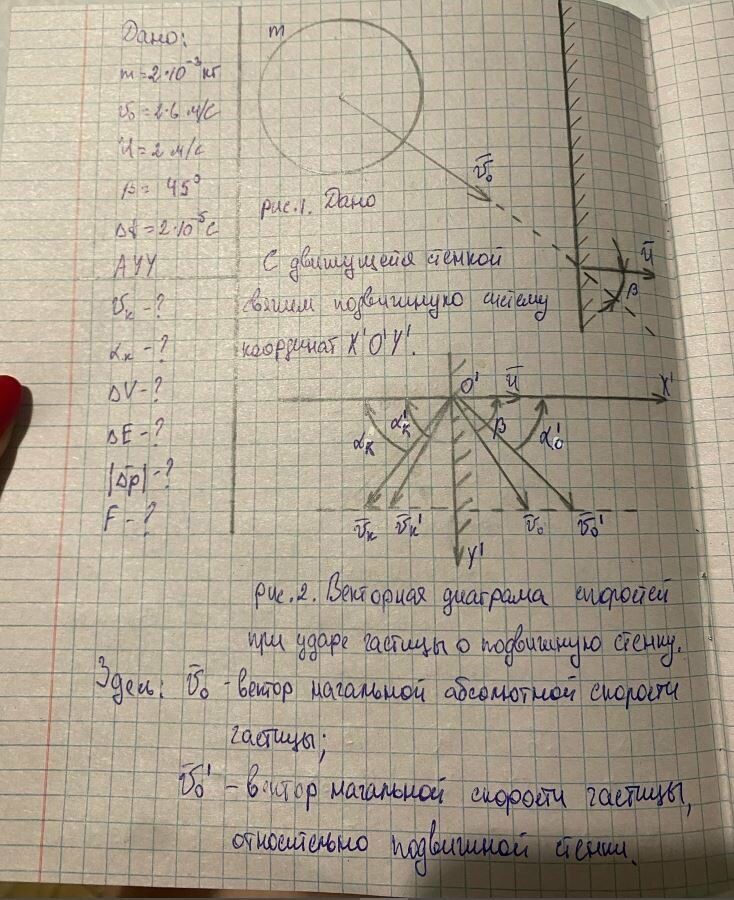 Дано:
m
m = 2·10⁻³ кг
v̄₀
v₀ = 2.6 м/с
U = 2 м/с
β = 45°
рис.1. Дано
Δt = 2·10⁻⁵ с
ū
β
АУУ
С движущейся стенкой
vₖ - ?
свяжем подвижную систему
αₖ - ?
координат X'O'Y'.
O'
ū
X'
ΔV - ?
αₖ
αₖ'
β
α₀'
ΔE - ?
|Δp̄| - ?
F - ?
v̄ₖ
v̄ₖ'
v̄₀
v̄₀'
Y'
рис.2. Векторная диаграма скоростей
при ударе частицы о подвижную стенку.
Здесь: v̄₀ - вектор начальной абсолютной скорости
частицы;
v̄₀' - вектор начальной скорости частицы,
относительно подвижной стенки.